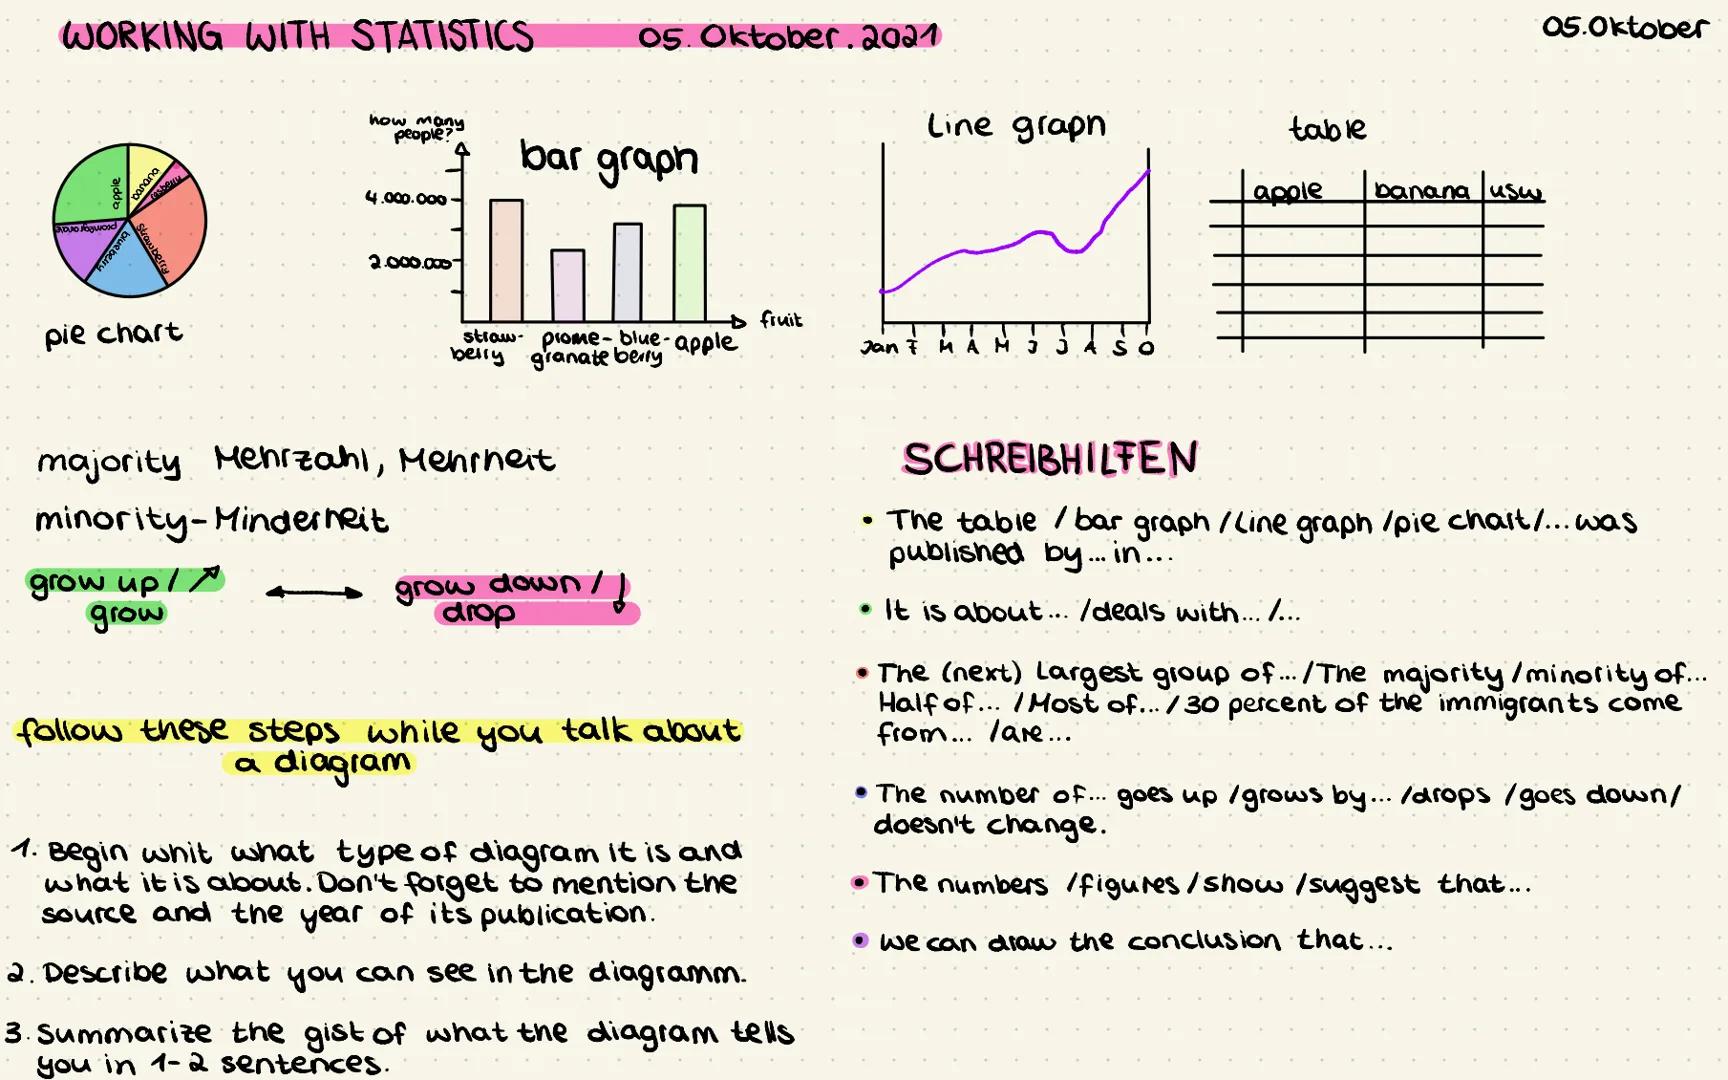 WORKING WITH STATISTICS 05. Oktober. 2021
05.Oktober
apple
banana
rasberry
strawberry
blueberry
promegranate
pie chart
how many
people?
bar graph
4.000.000
2.000.000
fruit
straw-
berry
prome-
granate
blue-
berry
apple
Line graph
Jan F M A M J J A S O
table
apple banana usw
majority Mehrzahl, Mehrheit
minority-Minderheit
grow up/
grow
grow down/
drop
follow these steps while you talk about
a diagram
1. Begin whit what type of diagram it is and
what it is about. Don't forget to mention the
source and the year of its publication.
2. Describe what you can see in the diagramm.
3. Summarize the gist of what the diagram tells
you in 1-2 sentences.
SCHREIBHILFEN
• The table / bar graph / Line graph /pie chart/... was
published by... in...
• It is about... /deals with... /...
• The (next) Largest group of... /The majority /minority of...
Half of... /Most of... /30 percent of the immigrants come
from... /are...
• The number of... goes up /grows by... /drops /goes down/
doesn't change.
• The numbers /figures /show /suggest that...
• We can draw the conclusion that...